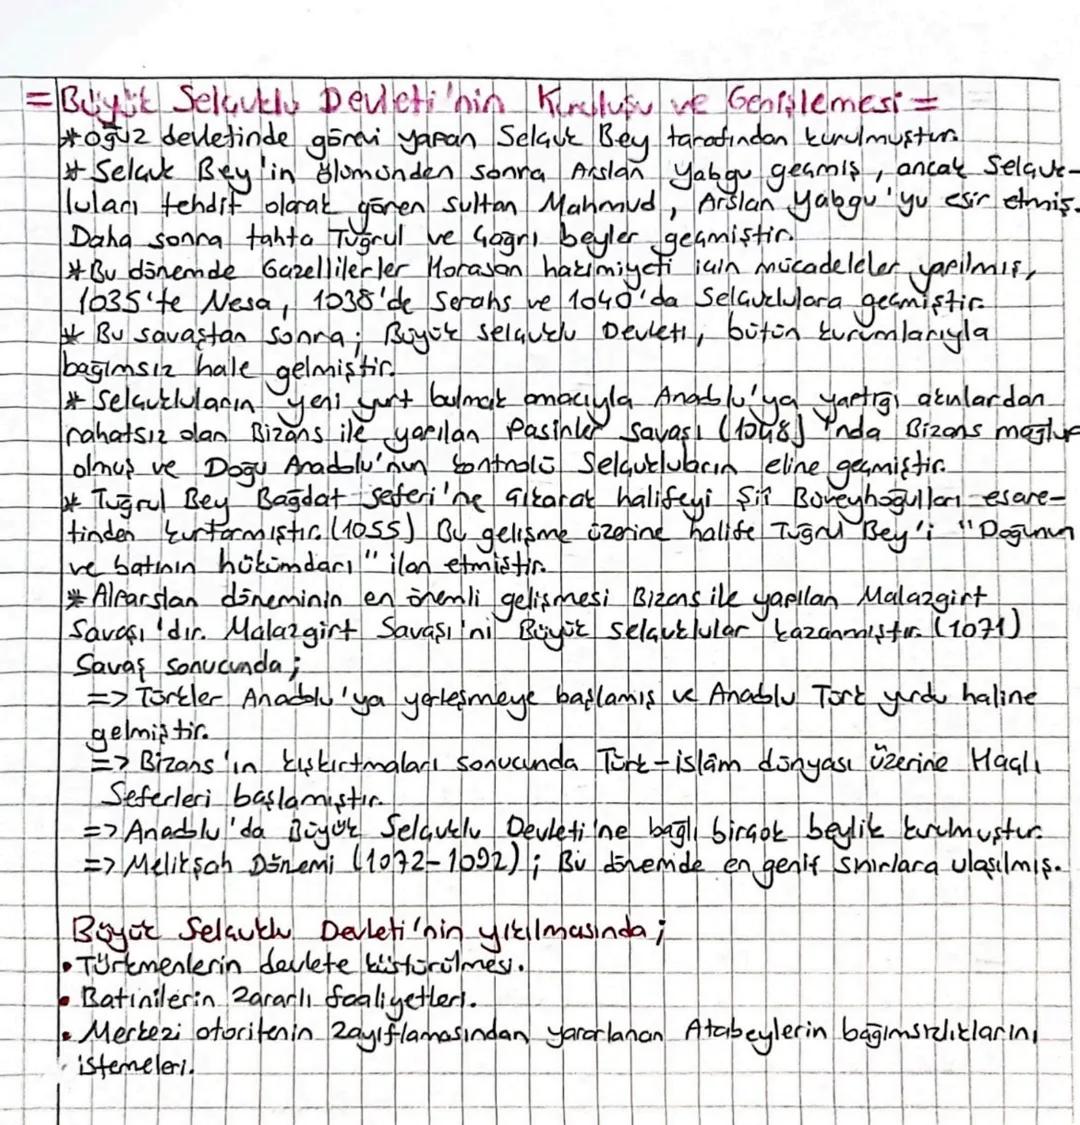 =Büyük Selçuklu Devleti'nin Kuruluşu ve Genişlemesi=
*Oğuz devletinde görevi yapan Selçuk Bey tarafından kurulmuştur.
*Selçuk Bey'in ölümünden sonra Arslan Yabgu geçmiş, ancak Selçuk-
luları tehdit olarak gören Sultan Mahmud, Arslan Yabgu'yu esir etmiş.
Daha sonra tahta Tuğrul ve Çağrı beyler geçmiştir.
*Bu dönemde Gazelliler'ler Horasan hakimiyeti için mücadeleler yapılmış,
1035'te Nesa, 1038'de Serahs ve 1040'da Selçuklulara geçmiştir.
* Bu savaştan sonra; Büyük Selçuklu Devleti, bütün kurumlarıyla
bağımsız hale gelmiştir.
* Selçukluların yeni yurt bulmak amacıyla Anadolu'ya yaptığı akınlardan
rahatsız olan Bizans ile yapılan Pasinler Savaşı (1048)'nda Bizans mağlup
olmuş ve Doğu Anadolu'nun kontrolü Selçukluların eline geçmiştir.
* Tuğrul Bey Bağdat Seferi'ne çıkarak halifeyi Şii Büveyhoğulları esare-
tinden kurtarmıştır.(1055) Bu gelişme üzerine halife Tuğrul Bey'i "Doğunun
ve batının hükümdarı" ilan etmiştir.
*Alparslan döneminin en önemli gelişmesi Bizans ile yapılan Malazgirt
Savaşı'dır. Malazgirt Savaşı'nı Büyük Selçuklular kazanmıştır.(1071)
Savaş sonucunda;
=> Türkler Anadolu'ya yerleşmeye başlamış ve Anadolu Türk yurdu haline
gelmiştir.
=> Bizans'ın kışkırtmaları sonucunda Türk-islâm dünyası üzerine Haçlı
Seferleri başlamıştır.
=> Anadolu'da Büyük Selçuklu Devleti'ne bağlı birçok beylik kurulmuştur.
=> Melikşah Dönemi (1072-1092); Bu dönemde en geniş sınırlara ulaşılmış.
Büyük Selçuklu Devleti'nin yıkılmasında;
• Türkmenlerin devlete küstürülmesi.
• Batinilerin zararlı faaliyetleri.
• Merkezi otoritenin zayıflamasından yararlanan Atabeylerin bağımsızlıklarını
istemeleri.